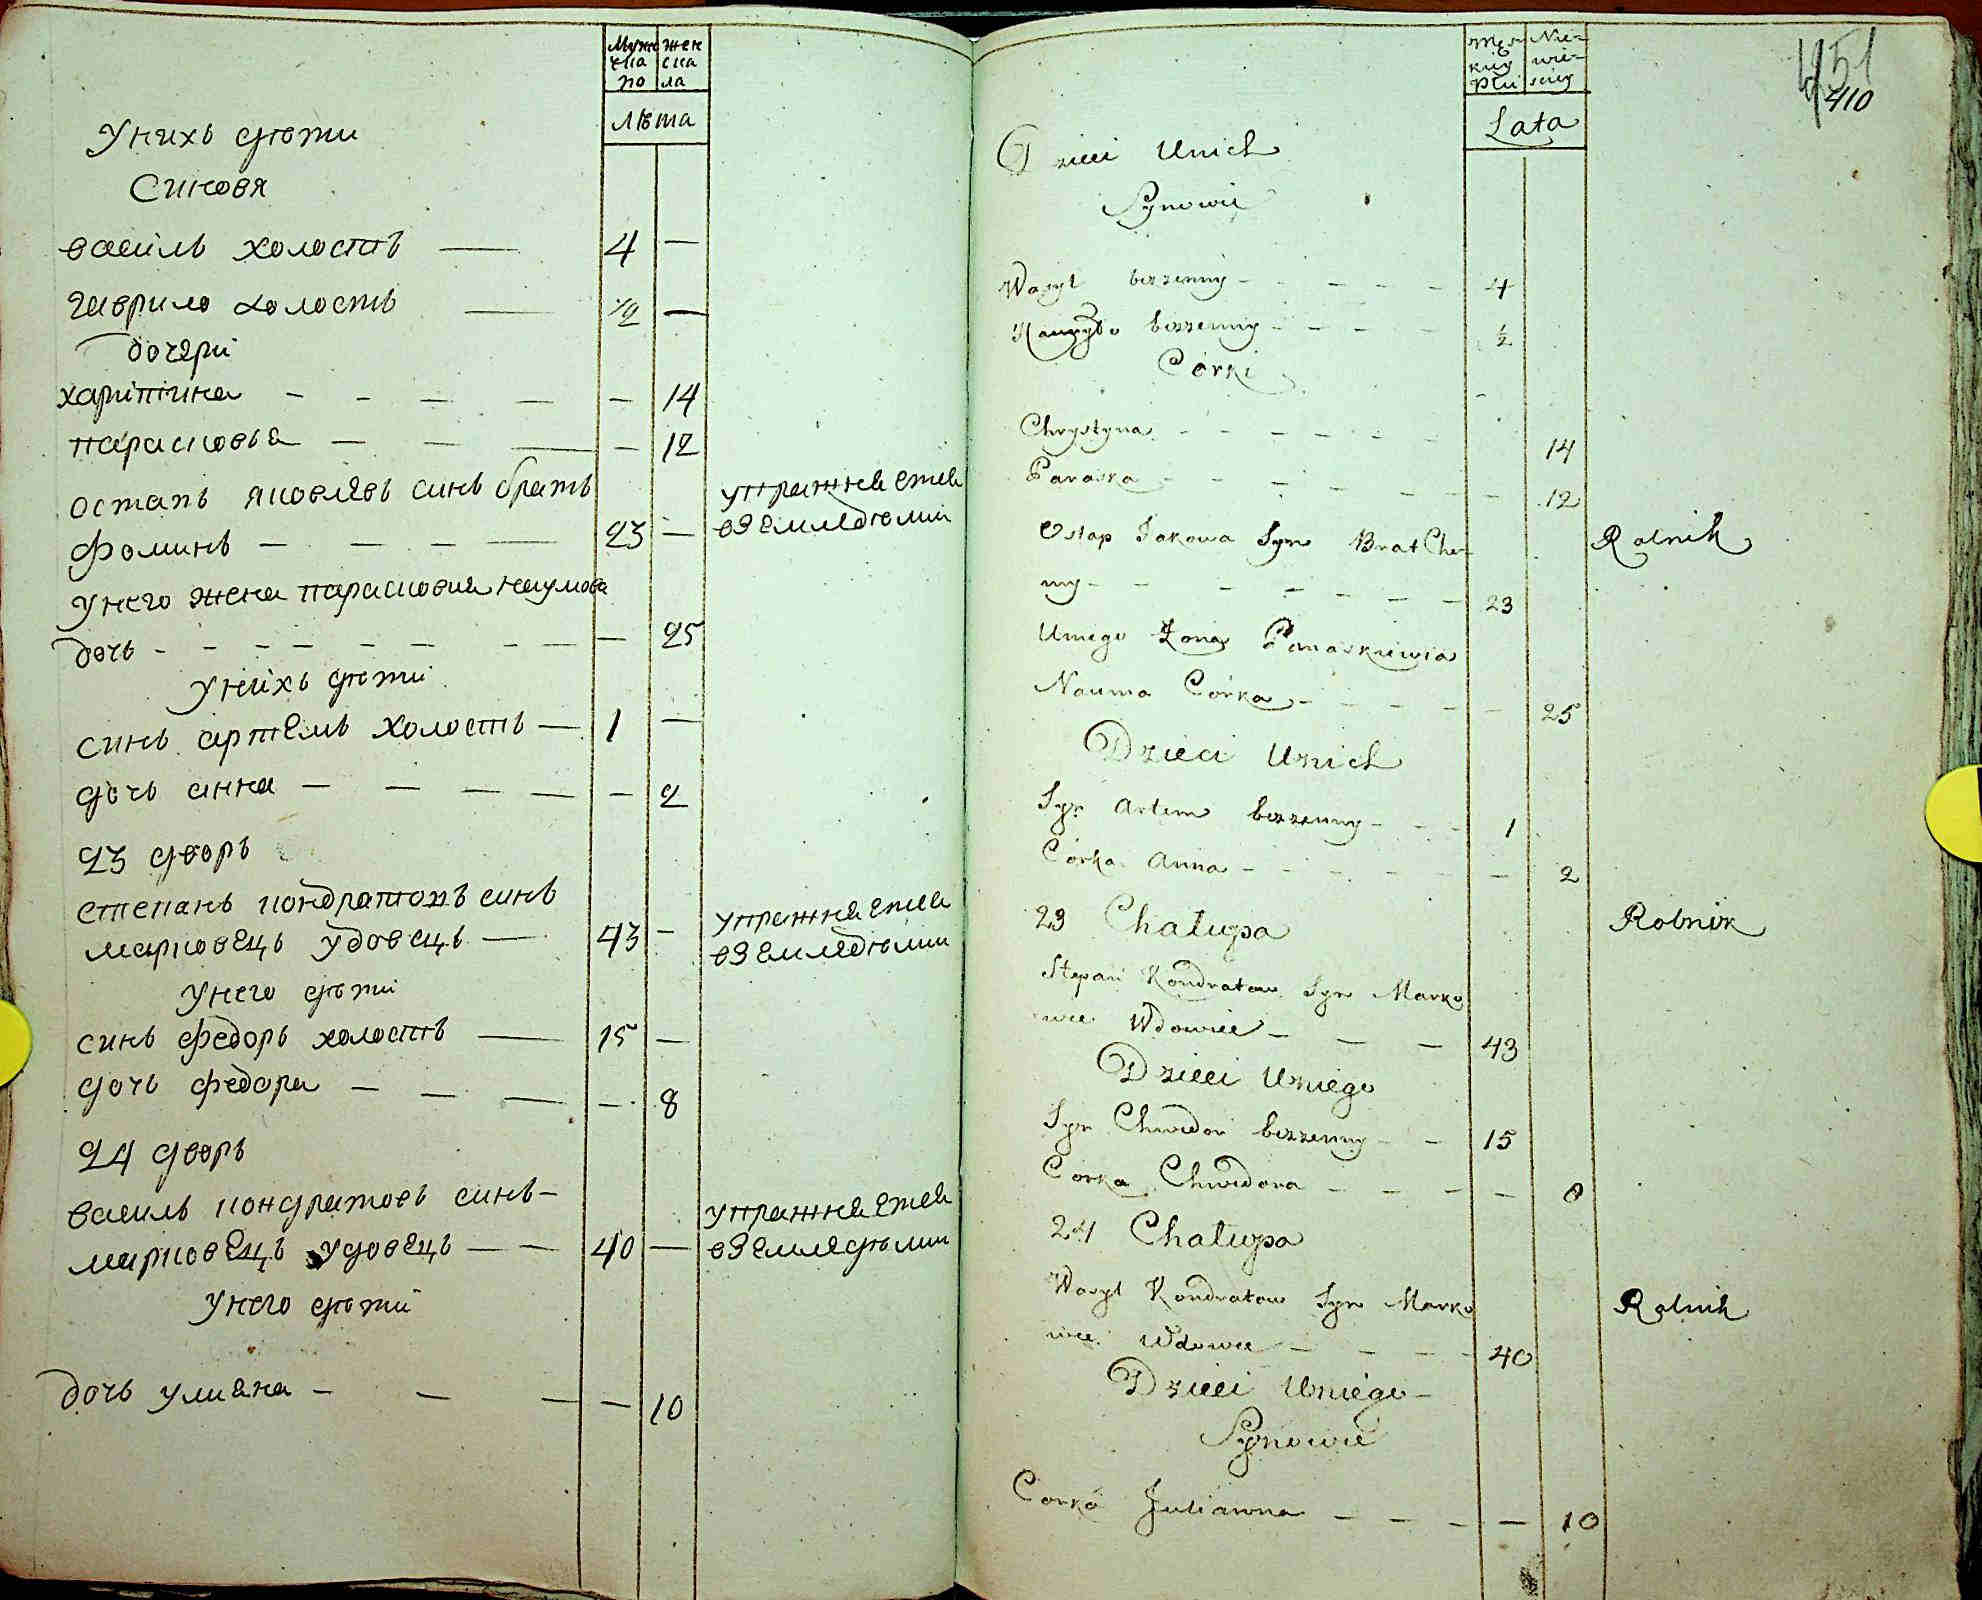 Мужеска по
женска ла
Лѣта
Унихъ дѣти
Синовя
василь холостъ — 4 —
гаврило холостъ — ½ —
дочери
харитина — — — — — 14
парасковья — — — — 12
остапъ яковлевъ синъ братъ
фоминъ — — — — 23 — упражняется
вземледѣлии
Унего жена парасковия наумова
дочь — — — — — — — 25
Унихъ дѣти
синъ артемъ холостъ — 1 —
дочь анна — — — — — 2
23 дворъ
степанъ кондратовъ синъ
марковецъ удовецъ — 43 — упражняется
вземледѣлии
Унего дѣти
синъ федоръ холостъ — 15 —
дочь федора — — — — 8
24 дворъ
василь кондратовъ синъ —
марковецъ удовецъ — — 40 — упражняется
вземледѣлии
Унего дѣти
дочь улияна — — — — 10
451
410
Męz
kiey
Płci
Nie-
wie-
sciey
Lata
Dzieci Unich
Synowie
Wasyl bezzenny - - - - - 4
bezzenny - - - - ½
Córki
Chrystyna - - - - - - 14
Paraska - - - - - - - 12
Ostap Jakowa Syn Brat Cho- Rolnik
my - - - - - - - 23
Uniego Zona Paraskiewia
Nauma Córka - - - - - 25
Dzieci Unich
Syn Artem bezzenny - - - 1
Córka Anna - - - - - - 2
23 Chałupa Rolnik
Stepan Kondratow Syn Marko
wiec Wdowiec - - - 43
Dzieci Uniego
Syn Chwedor bezzenny - - 15
Corka Chwedora - - - - 8
24 Chałupa
Wasyl Kondratow Syn Marko Rolnik
wiec Wdowiec - - - - 40
Dzieci Uniego -
Synowie
Corka Julianna - - - - 10